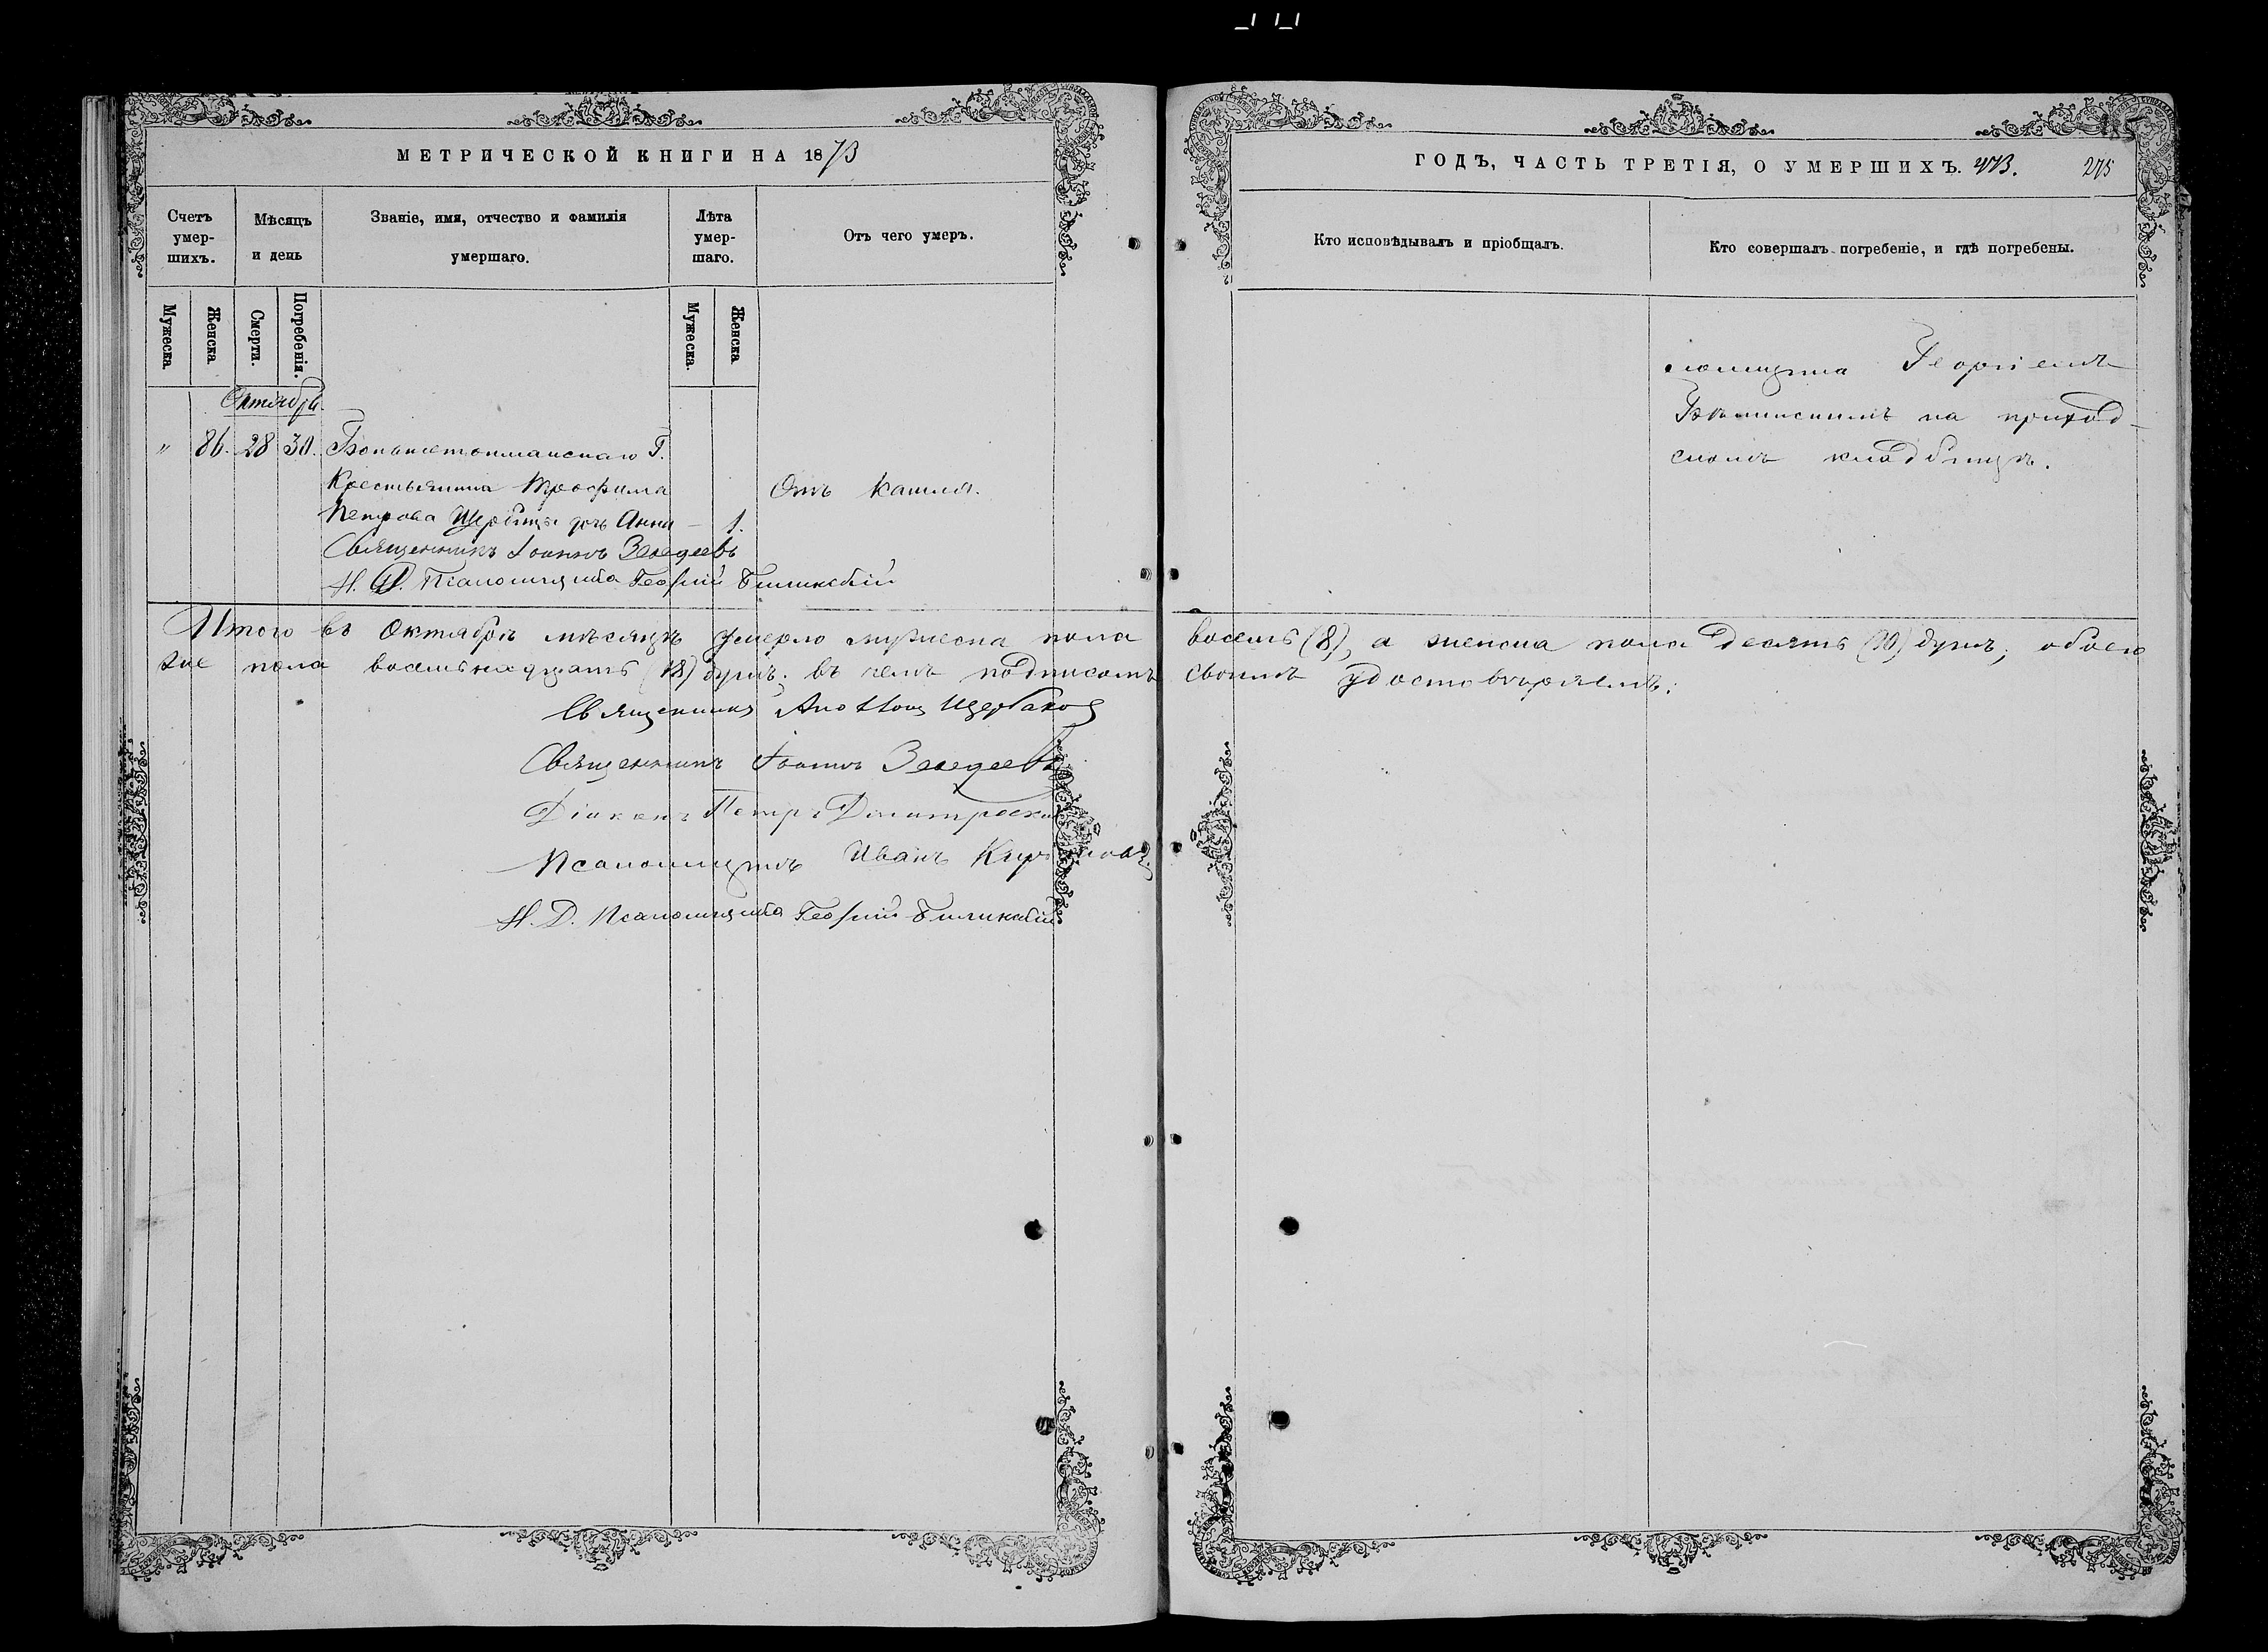 МЕТРИЧЕСКОЙ КНИГИ НА 1873
Счетъ умер-шихъ.
Мѣсяцъ и день
Званіе, имя, отчество и фамилія умершаго.
Лѣта умер-шаго.
Отъ чего умеръ.
Мужеска.
Женска
Смерти.
Погребенія.
Мужеска.
Женска
Октябрь.
" 86. 28 30.
Крестьянина Трофима
Отъ кашля.
Петрова Щербины дочь Анна – 1.
Священникъ Іоаннъ Зеведеевъ
И. Д. Псаломщика Георгій
Итого въ Октябрѣ мѣсяцѣ умерло мужеска пола
гое пола восемьнадцать (18) душъ; въ чемъ подписомъ
Священникъ Щербаков
Священникъ Іоаннъ Зеведеевъ
Діаконъ Петръ
Псаломщикъ Иванъ
И. Д. Псаломщика Георгій
ГОДЪ, ЧАСТЬ ТРЕТІЯ, О УМЕРШИХЪ. 473. 275
Кто исповѣдывалъ и пріобщалъ.
Кто совершалъ погребеніе, и гдѣ погребены.
ломщика Георгіемъ
на приход-
скомъ кладбищѣ.
восемь (8), а женска пола десять (10) душъ, обоего
своимъ удостовѣряемъ: